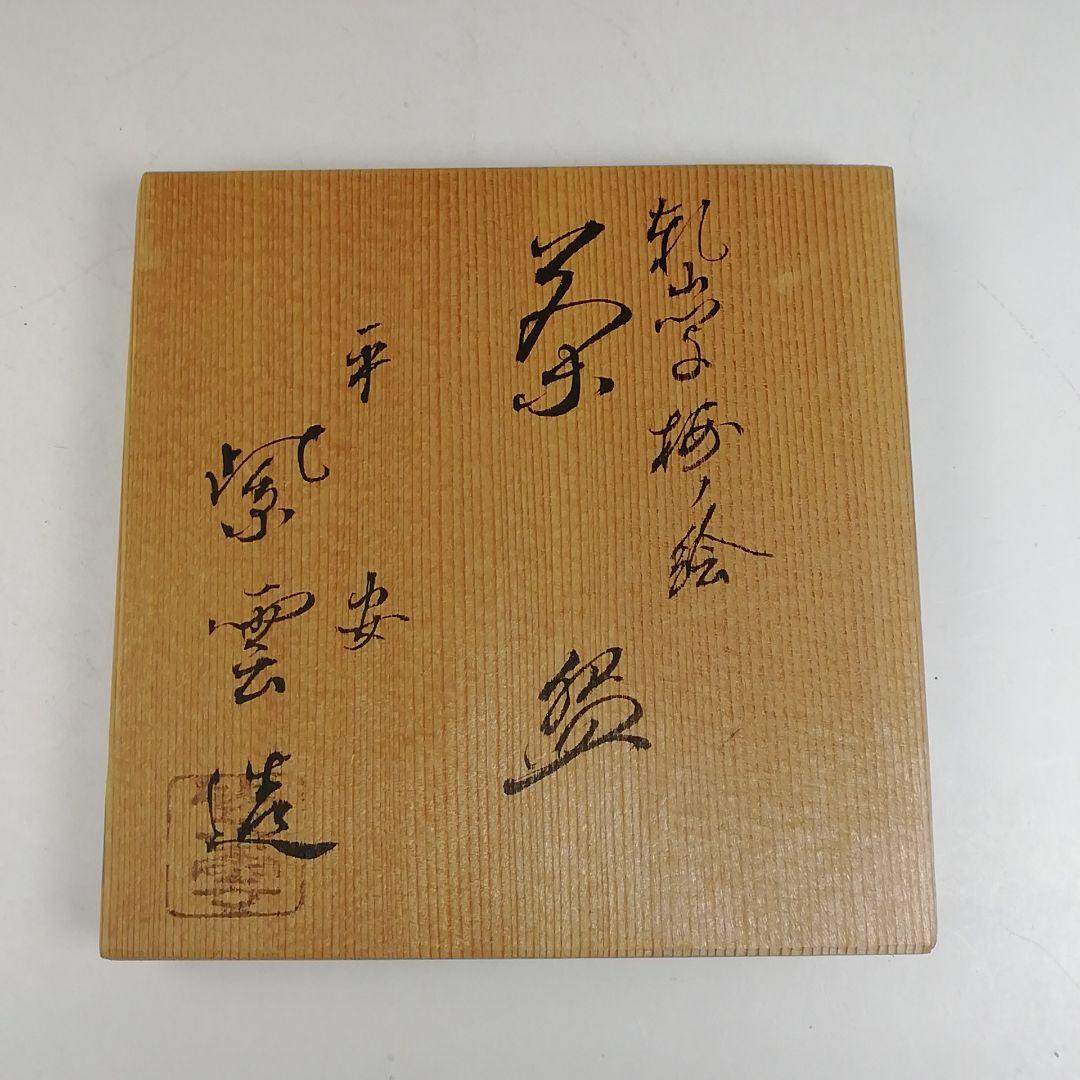 乾山写梅ノ絵
茶盌
平安
紫雲造